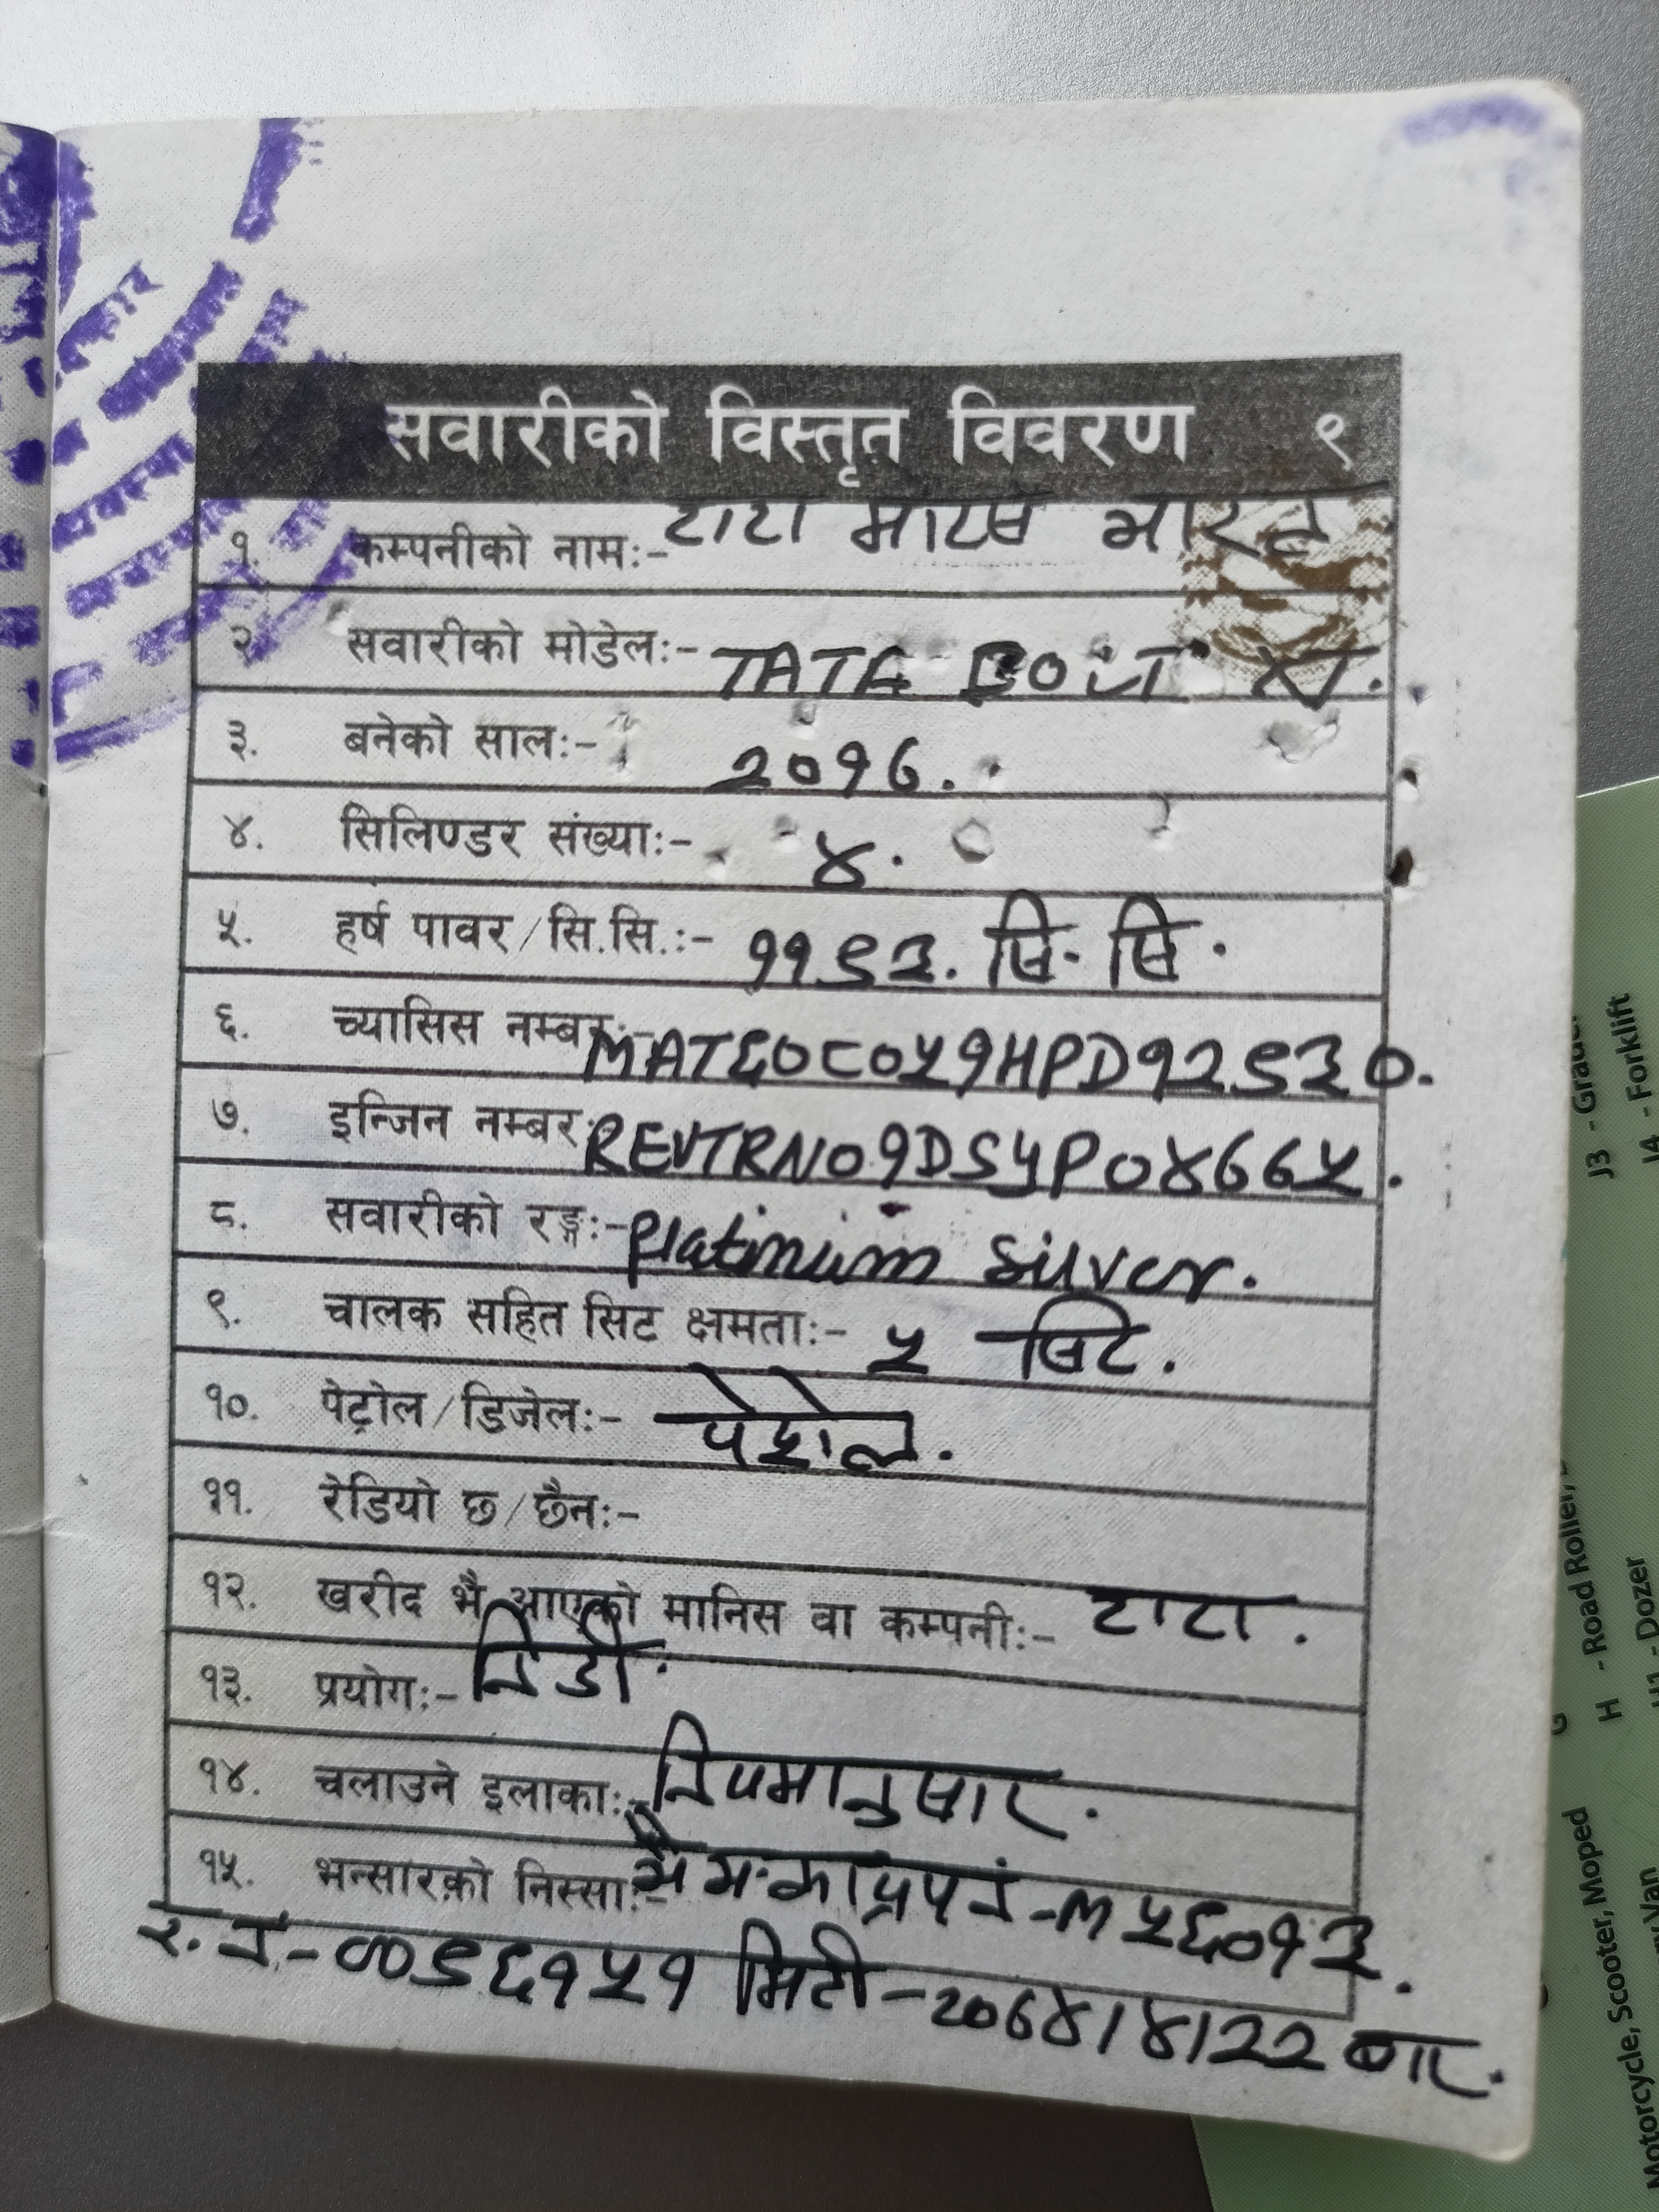 सवारीको विस्तृत विवरण ९
१. कम्पनीको नामः- टाटा मोटर्स भारत
२. सवारीको मोडेलः- TATA BOLT XT.
३. बनेको सालः- २०१७.
४. सिलिण्डर संख्याः- ४.
५. हर्ष पावर/सि.सि.ः- ११९३. सि. सि.
६. च्यासिस नम्बरः- MAT६०८०५१HPD१२९३०.
७. इन्जिन नम्बरः- REVTRN०१DSYP०४७७५.
८. सवारीको रङ्गः- Platinium Silver.
९. चालक सहित सिट क्षमताः- ५ सिट.
१०. पेट्रोल/डिजेलः- पेट्रोल.
११. रेडियो छ/छैनः-
१२. खरीद भै आएको मानिस वा कम्पनीः- टाटा.
१३. प्रयोगः- निजी.
१४. चलाउने इलाकाः- नियमानुसार.
१५. भन्सारको निस्साः- भै.भ.का.प्र.प.नं-M५६०१३.
र.नं-००९६१५१ मिती-२०७४/४/२२
J3 -
J4 - Forklift
H - Road Roller,
- Dozer
Motorcycle, Scooter, Moped
Van